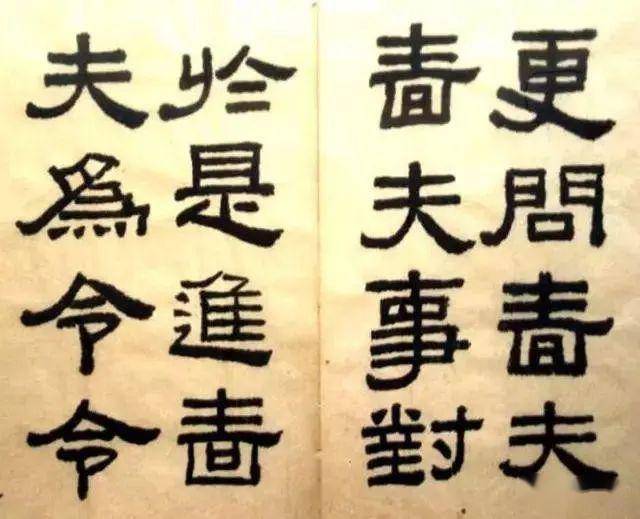 更問嗇夫
嗇夫事對
於是進嗇
夫爲令令